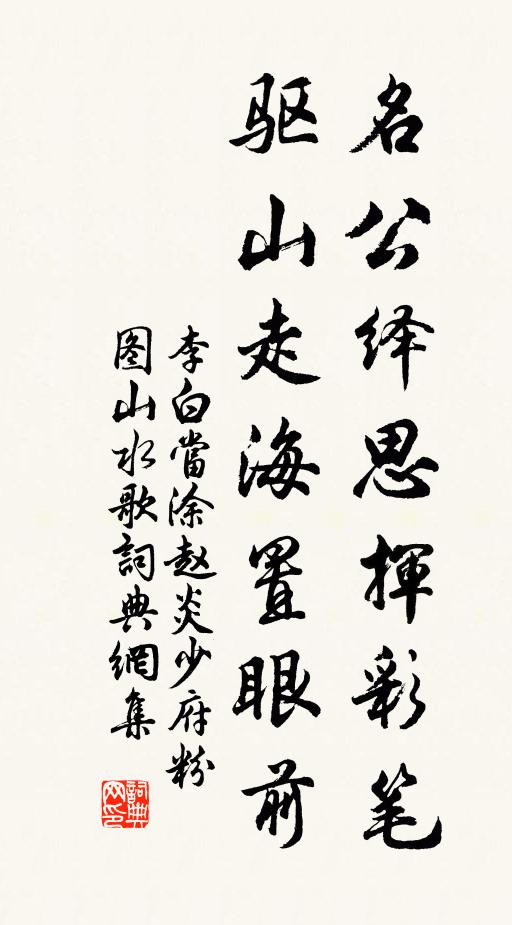 名公绎思揮彩笔
驱山走海置眼前
李白當涂赵炎少府粉
图山水歌詞典網集
詞典
网印